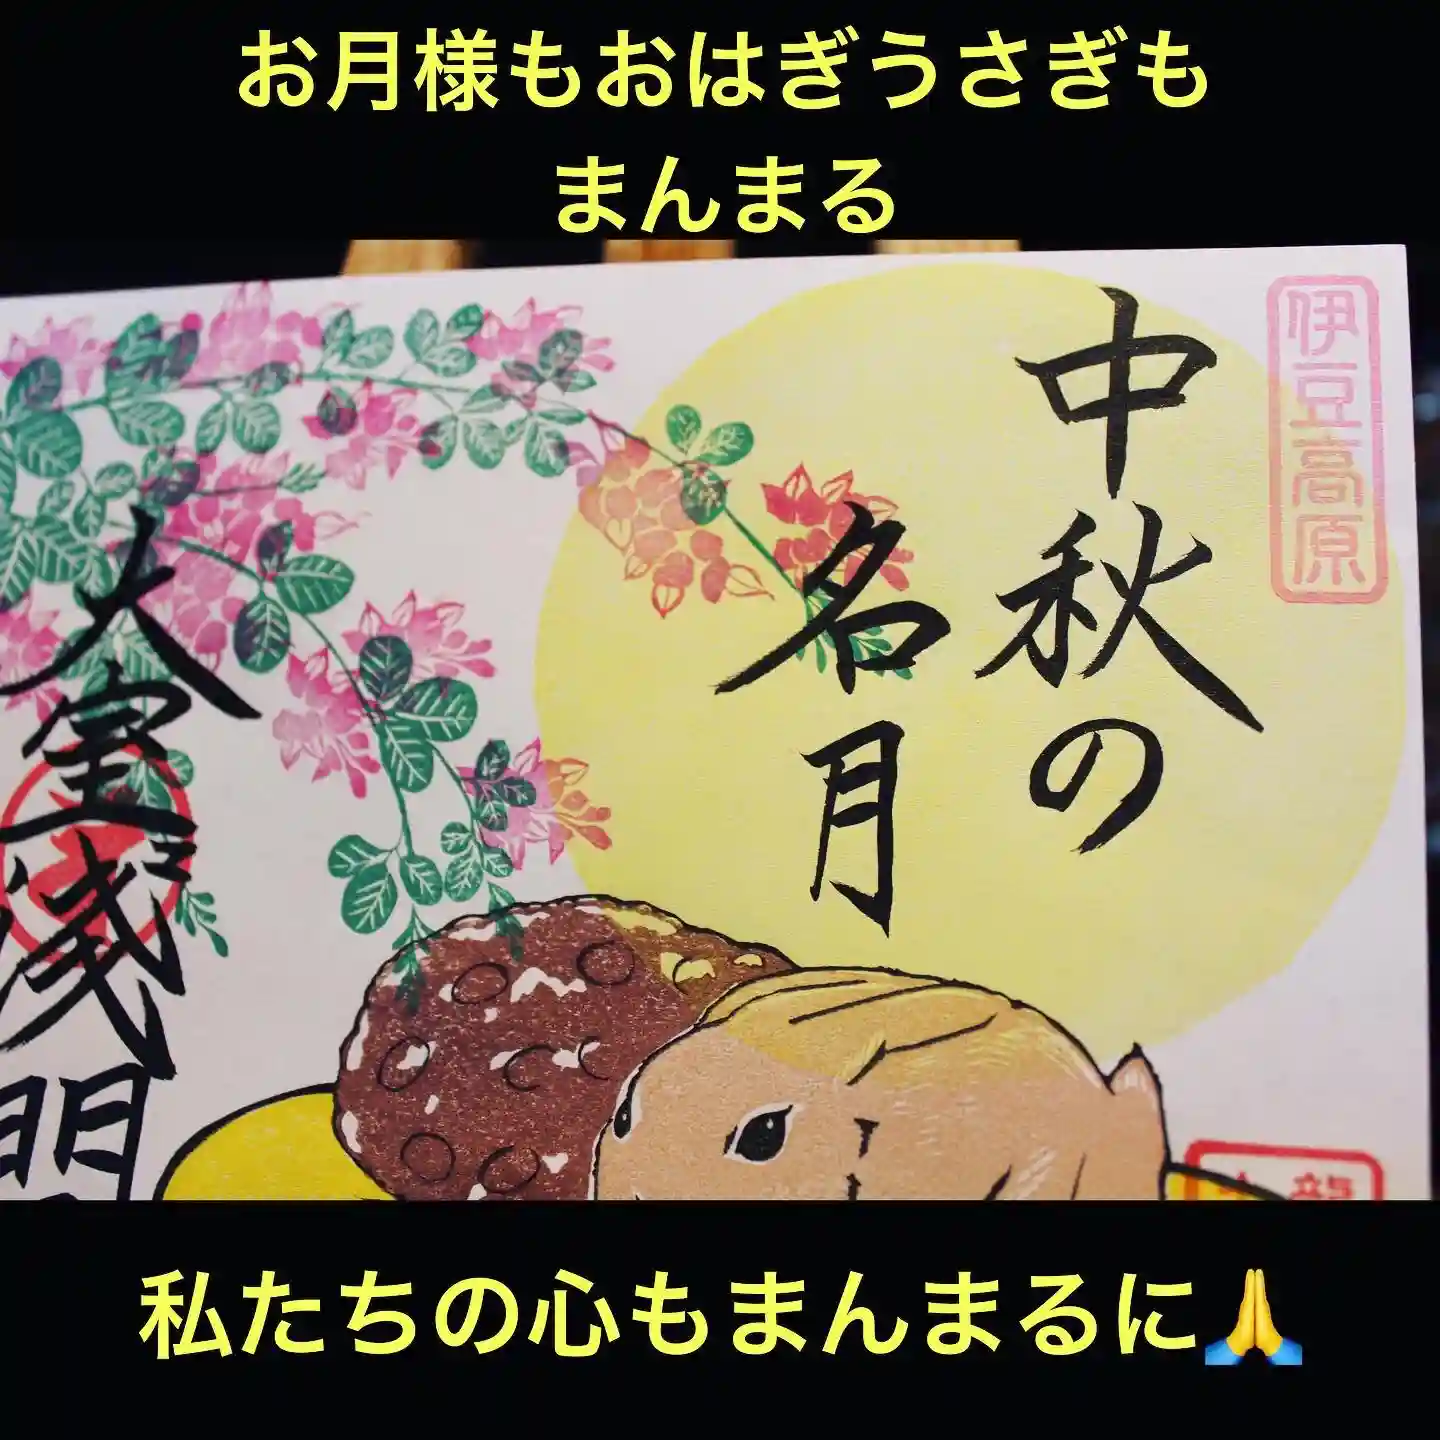 お月様もおはぎうさぎも
まんまる
伊豆高原
中秋の
名月
大室浅間
私たちの心もまんまるに🙏